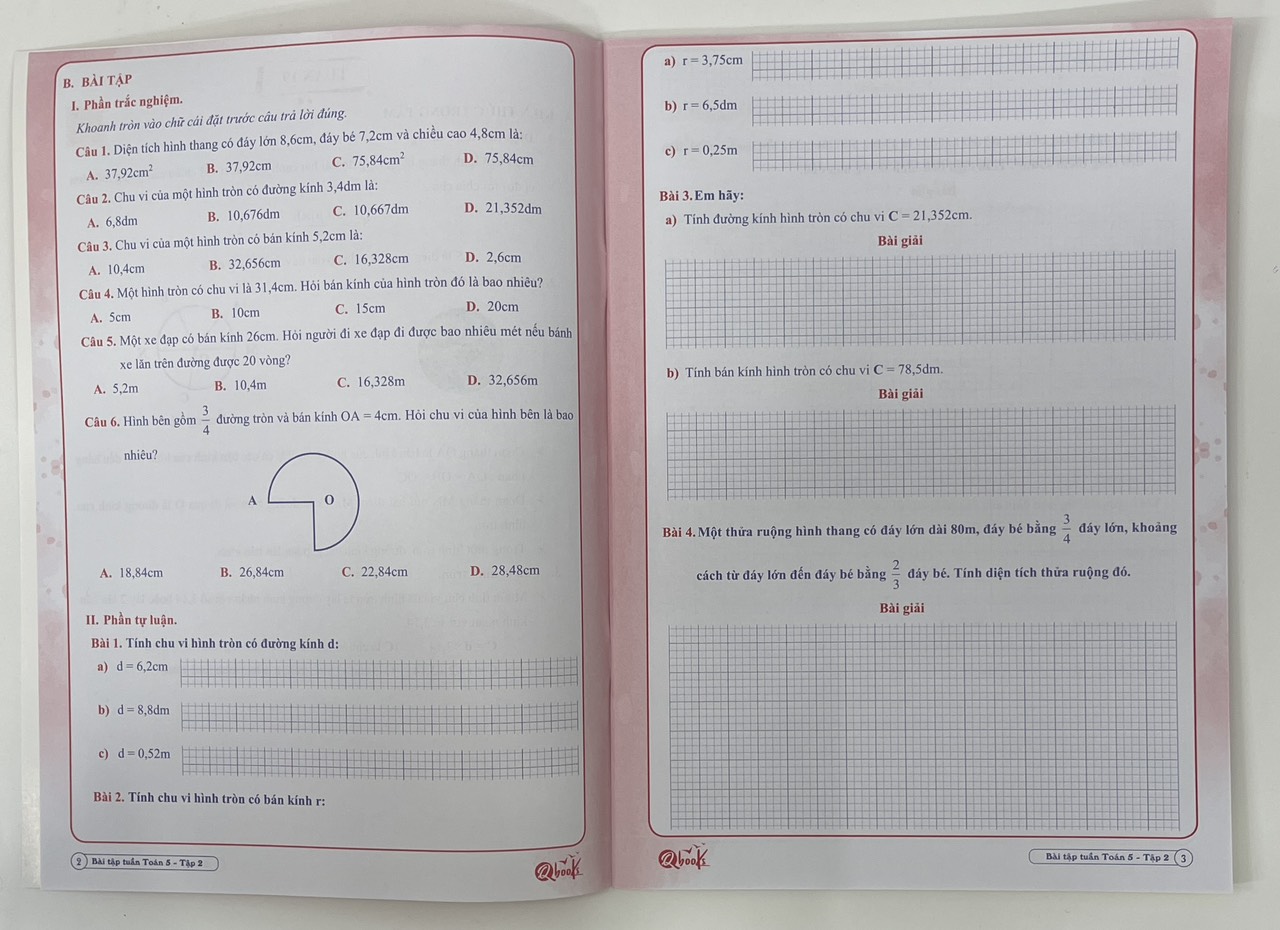 B. BÀI TẬP
I. Phần trắc nghiệm.
Khoanh tròn vào chữ cái đặt trước câu trả lời đúng.
Câu 1. Diện tích hình thang có đáy lớn 8,6cm, đáy bé 7,2cm và chiều cao 4,8cm là:
A. 37,92cm² B. 37,92cm C. 75,84cm² D. 75,84cm
Câu 2. Chu vi của một hình tròn có đường kính 3,4dm là:
A. 6,8dm B. 10,676dm C. 10,667dm D. 21,352dm
Câu 3. Chu vi của một hình tròn có bán kính 5,2cm là:
A. 10,4cm B. 32,656cm C. 16,328cm D. 2,6cm
Câu 4. Một hình tròn có chu vi là 31,4cm. Hỏi bán kính của hình tròn đó là bao nhiêu?
A. 5cm B. 10cm C. 15cm D. 20cm
Câu 5. Một xe đạp có bán kính 26cm. Hỏi người đi xe đạp đi được bao nhiêu mét nếu bánh
xe lăn trên đường được 20 vòng?
A. 5,2m B. 10,4m C. 16,328m D. 32,656m
Câu 6. Hình bên gồm 3/4 đường tròn và bán kính OA = 4cm. Hỏi chu vi của hình bên là bao
nhiêu?
A O
A. 18,84cm B. 26,84cm C. 22,84cm D. 28,48cm
II. Phần tự luận.
Bài 1. Tính chu vi hình tròn có đường kính d:
a) d = 6,2cm
b) d = 8,8dm
c) d = 0,52m
Bài 2. Tính chu vi hình tròn có bán kính r:
2 Bài tập tuần Toán 5 - Tập 2
Qbooks
a) r = 3,75cm
b) r = 6,5dm
c) r = 0,25m
Bài 3. Em hãy:
a) Tính đường kính hình tròn có chu vi C = 21,352cm.
Bài giải
b) Tính bán kính hình tròn có chu vi C = 78,5dm.
Bài giải
Bài 4. Một thửa ruộng hình thang có đáy lớn dài 80m, đáy bé bằng 3/4 đáy lớn, khoảng
cách từ đáy lớn đến đáy bé bằng 2/3 đáy bé. Tính diện tích thửa ruộng đó.
Bài giải
Qbooks
Bài tập tuần Toán 5 - Tập 2 3